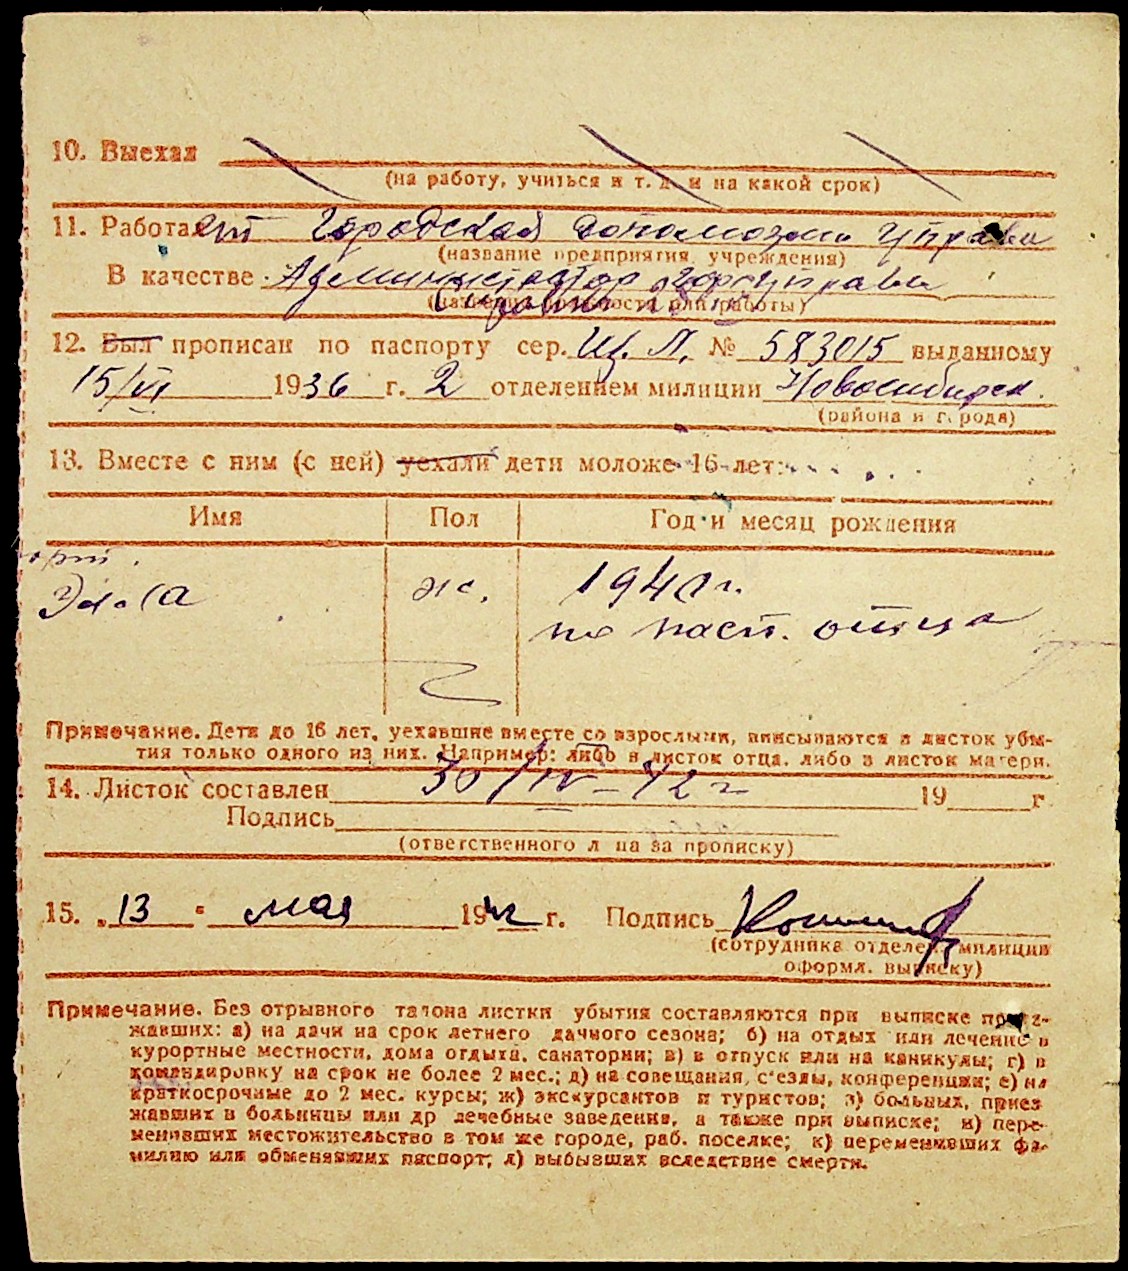 10. Выехал
(на работу, учиться и т. д. и на какой срок)
11. Работает Городская Управа
(название предприятия, учреждения)
В качестве Администратор горуправы
(название должности или работы)
12. Был прописан по паспорту сер. № 583015 выданному
15/VI 1936 г. 2 отделением милиции Новосибирск
(района и города)
13. Вместе с ним (с ней) уехали дети моложе 16 лет:
Имя Пол Год и месяц рождения
Элла ж. 1940 г.
по пасп. отца
Примечание. Дети до 16 лет, уехавшие вместе со взрослыми, вписываются в листок убы-
тия только одного из них. Например: либо в листок отца, либо в листок матери.
14. Листок составлен 30/IV–42 г 19 г
Подпись
(ответственного лица за прописку)
15. „13 " мая 1942 г. Подпись
(сотрудника отделен. милиции
оформл. выписку)
Примечание. Без отрывного талона листки убытия составляются при выписке приез-
жавших: а) на дачи на срок летнего дачного сезона; б) на отдых или лечение в
курортные местности, дома отдыха, санатории; в) в отпуск или на каникулы; г) в
командировку на срок не более 2 мес.; д) на совещания, с'езды, конференции; е) на
краткосрочные до 2 мес. курсы; ж) экскурсантов и туристов; з) больных, приез
жавших в больницы или др лечебные заведения, а также при выписке; и) пере-
менивших местожительство в том же городе, раб. поселке; к) переменивших фа-
милию или обменявших паспорт; л) выбывших вследствие смерти.